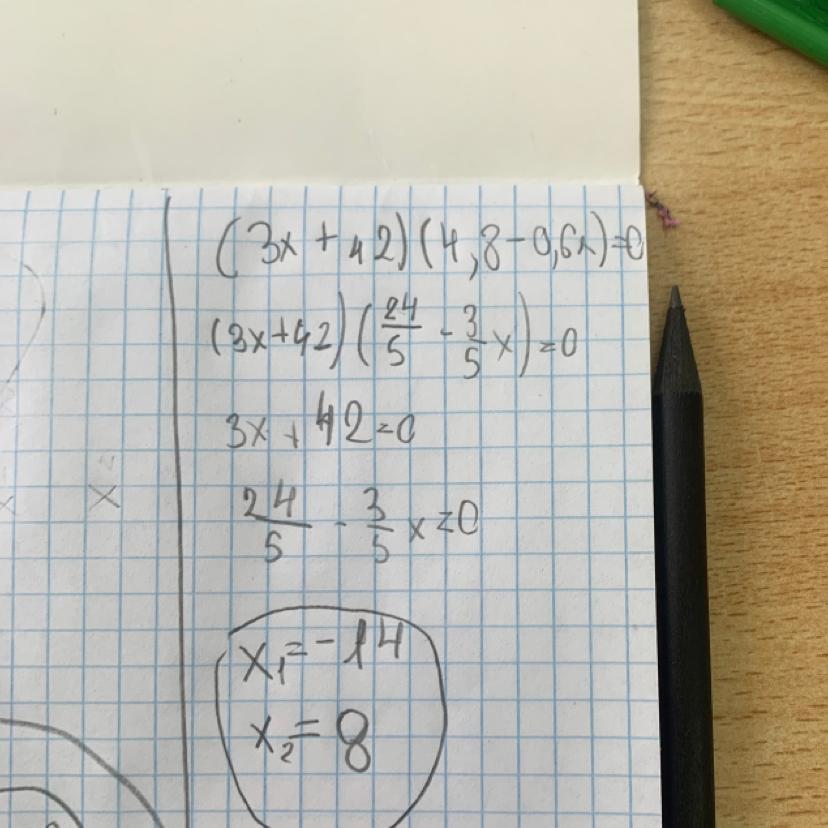 (3x + 42)(4,8 - 0,6x)=0
(3x+42)(24/5 - 3/5 x)=0
3x + 42=0
24/5 - 3/5 x=0
x₁=-14
x₂=8